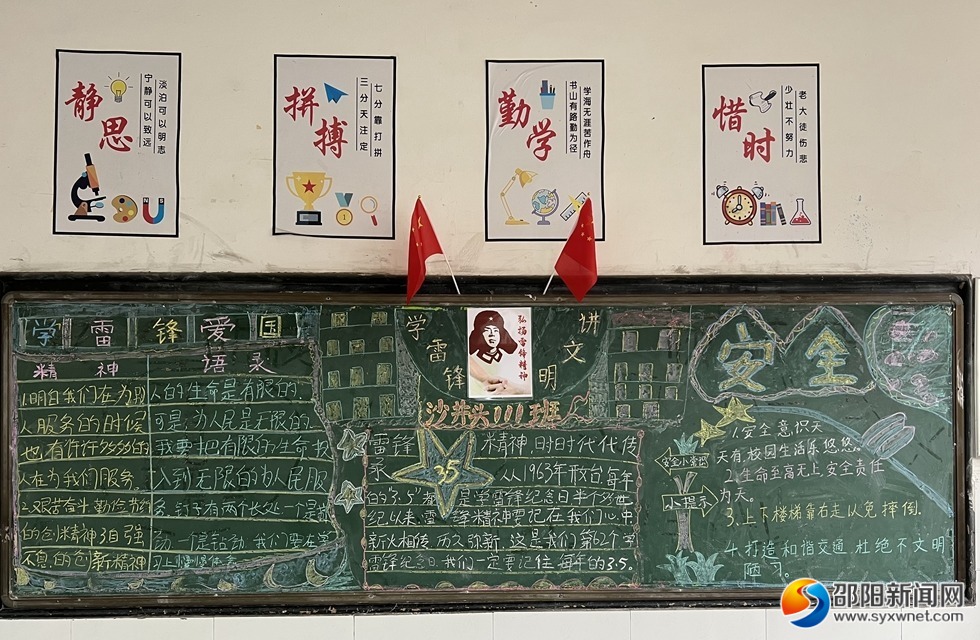 静思
淡泊可以明志
宁静可以致远
拼搏
七分靠打拼
三分天注定
勤学
学海无涯苦作舟
书山有路勤为径
惜时
老大徒伤悲
少壮不努力
学雷锋爱国
精神
1.明白我们在为别
人服务的的时候
也有许许多多的的
人在为我们服务.
2.艰苦奋斗勤俭节约
的创精神3自强
不息的创新精神
语录
人的生命是有限的
可是,为人民是无限的
我要把有限的生命投
入到无限的为人民服
务,钉子有两个长处一个是
一个是钻劲,我们要在学
习上
学雷锋
讲文明
弘扬雷锋精神
沙井头111班
雷锋精神,时时代代传
承 从1963年秋台每年
的"3.5"
纪以来,雷锋精神要记在我们心中
薪火相传历久弥新,这是我们第62个学
雷锋纪念日,我们一定要记住每年的3.5.
3.5
安全
安全小常识
小提示
1.安全意识天
天有,校园生活乐悠悠
2.生命至高无上,安全责任
为天。
3.上下楼梯靠右走以免摔倒.
4.打造和谐交通,杜绝不文明
陋习。
邵阳新闻网
www.syxwnet.com